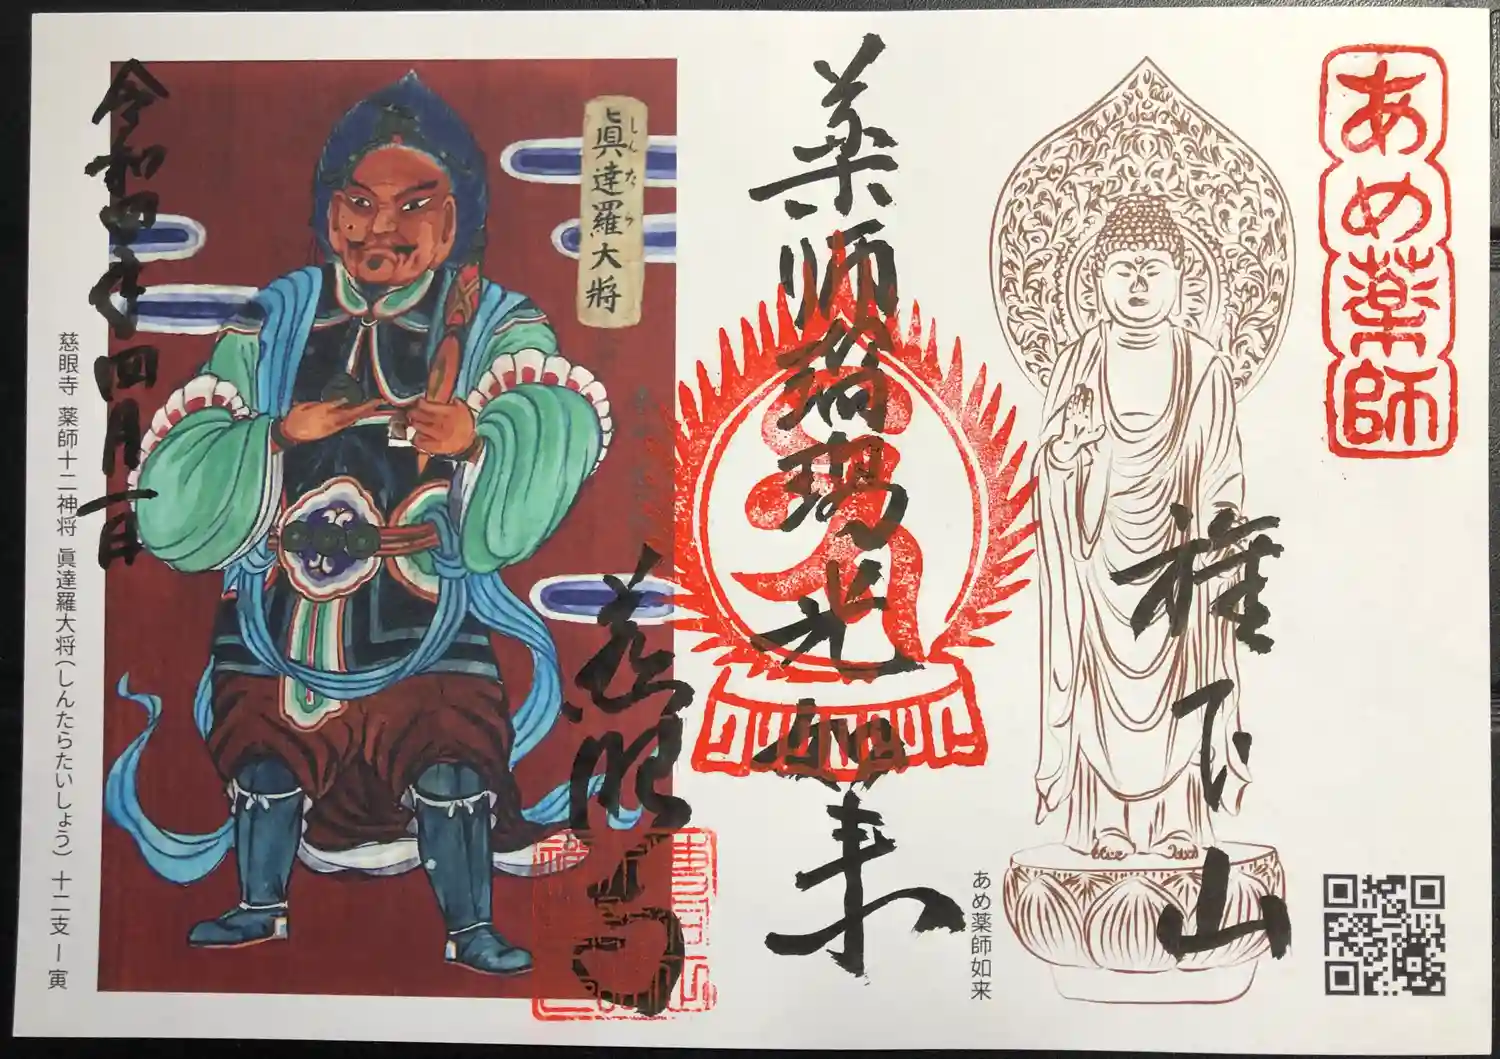 あめ薬師
あめ薬師如来
薬師瑠璃光如来
慈眼寺
眞達羅大將
しんたら
令和四年四月一日
慈眼寺 薬師十二神将 眞達羅大将(しんたらたいしょう) 十二支 ー 寅